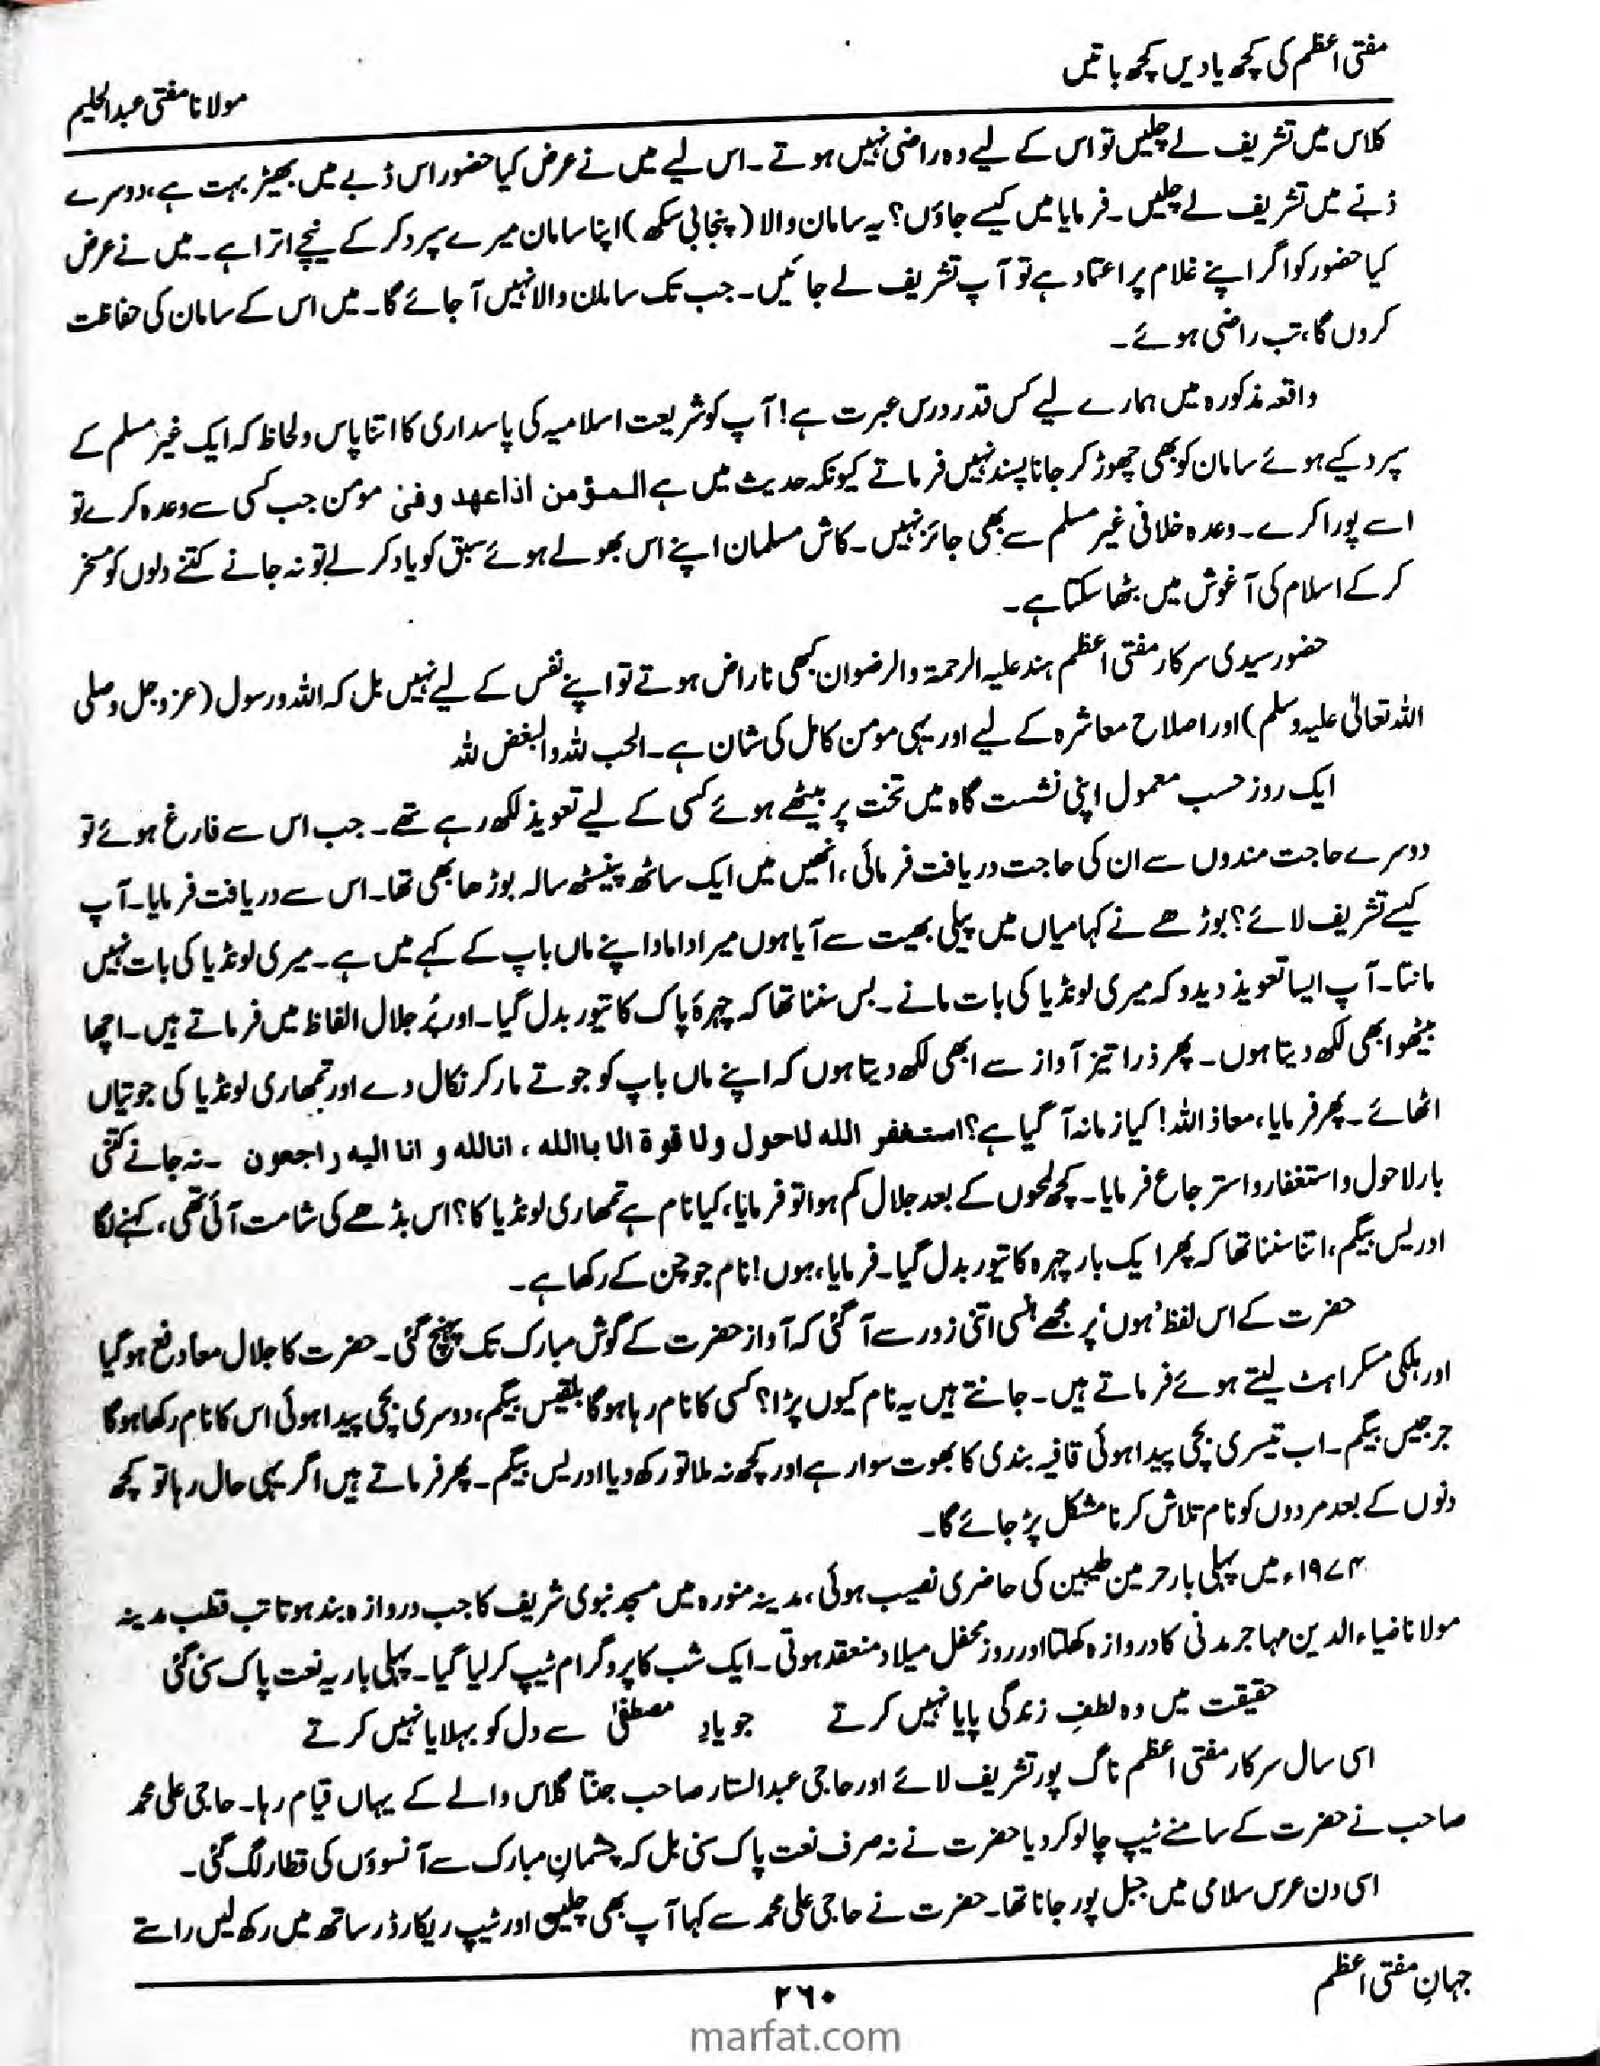 مفتی اعظم کی کچھ یادیں کچھ باتیں
مولانا مفتی عبدالحلیم
کلاس میں تشریف لے چلیں تو اس کے لیے وہ راضی نہیں ہوتے۔ اس لیے میں نے عرض کیا حضور اس ڈبے میں بھیڑ بہت ہے، دوسرے
ڈبے میں تشریف لے چلیں۔ فرمایا میں کیسے جاؤں؟ یہ سامان والا (پنجابی سکھ) اپنا سامان میرے سپرد کر کے نیچے اترا ہے۔ میں نے عرض
کیا حضور کو اگر اپنے غلام پر اعتماد ہے تو آپ تشریف لے جائیں۔ جب تک سامان والا نہیں آجائے گا۔ میں اس کے سامان کی حفاظت
کروں گا، تب راضی ہوئے۔
واقعہ مذکورہ میں ہمارے لیے کس قدر درس عبرت ہے! آپ کو شریعت اسلامیہ کی پاسداری کا اتنا پاس ولحاظ کہ ایک غیر مسلم کے
سپرد کیے ہوئے سامان کو بھی چھوڑ کر جانا پسند نہیں فرماتے کیونکہ حدیث میں ہے المؤمن اذا عهد وفىٰ مومن جب کسی سے وعدہ کرے تو
اسے پورا کرے۔ وعدہ خلافی غیر مسلم سے بھی جائز نہیں۔ کاش مسلمان اپنے اس بھولے ہوئے سبق کو یاد کر لے تو نہ جانے کتنے دلوں کو مسخر
کر کے اسلام کی آغوش میں بٹھا سکتا ہے۔
حضور سیدی سرکار مفتی اعظم ہند علیہ الرحمۃ والرضوان کبھی ناراض ہوتے تو اپنے نفس کے لیے نہیں بل کہ اللہ و رسول (عزوجل وصلی
اللہ تعالیٰ علیہ وسلم) اور اصلاح معاشرہ کے لیے اور یہی مومن کامل کی شان ہے۔ الحب للہ والبغض للہ
ایک روز حسب معمول اپنی نشست گاہ میں تخت پر بیٹھے ہوئے کسی کے لیے تعویذ لکھ رہے تھے۔ جب اس سے فارغ ہوئے تو
دوسرے حاجت مندوں سے ان کی حاجت دریافت فرمائی، انھیں میں ایک ساٹھ پینسٹھ سالہ بوڑھا بھی تھا۔ اس سے دریافت فرمایا۔ آپ
کیسے تشریف لائے؟ بوڑھے نے کہا میاں میں پیلی بھیت سے آیا ہوں میرا داماد اپنے ماں باپ کے کہے میں ہے۔ میری لونڈیا کی بات نہیں
مانتا۔ آپ ایسا تعویذ دیدو کہ میری لونڈیا کی بات مانے۔ بس سننا تھا کہ چہرۂ پاک کا تیور بدل گیا۔ اور پُر جلال الفاظ میں فرماتے ہیں۔ اچھا
بیٹھو ابھی لکھ دیتا ہوں۔ پھر ذرا تیز آواز سے ابھی لکھ دیتا ہوں کہ اپنے ماں باپ کو جوتے مار کر نکال دے اور تمھاری لونڈیا کی جوتیاں
اٹھائے۔ پھر فرمایا، معاذ اللہ! کیا زمانہ آگیا ہے؟ استغفر الله لاحول ولا قوة الا باالله ، انالله و انا اليه راجعون ۔ نہ جانے کتنی
بار لاحول و استغفار و استرجاع فرمایا۔ کچھ لمحوں کے بعد جلال کم ہوا تو فرمایا، کیا نام ہے تمھاری لونڈیا کا؟ اس بڈھے کی شامت آئی تھی، کہنے لگا
ادریس بیگم، اتنا سننا تھا کہ پھر ایک بار چہرہ کا تیور بدل گیا۔ فرمایا، ہوں! نام جو چن کے رکھا ہے۔
حضرت کے اس لفظ 'ہوں' پر مجھے ہنسی اتنی زور سے آگئی کہ آواز حضرت کے گوش مبارک تک پہنچ گئی۔ حضرت کا جلال معاً دفع ہوگیا
اور ہلکی مسکراہٹ لیتے ہوئے فرماتے ہیں۔ جانتے ہیں یہ نام کیوں پڑا؟ کسی کا نام رہا ہوگا بلقیس بیگم، دوسری بچی پیدا ہوئی اس کا نام رکھا ہوگا
جرجیس بیگم۔ اب تیسری بچی پیدا ہوئی قافیہ بندی کا بھوت سوار ہے اور کچھ نہ ملا تو رکھ دیا ادریس بیگم۔ پھر فرماتے ہیں اگر یہی حال رہا تو کچھ
دنوں کے بعد مردوں کو نام تلاش کرنا مشکل پڑ جائے گا۔
۱۹۷۴ء میں پہلی بار حرمین طیبین کی حاضری نصیب ہوئی، مدینہ منورہ میں مسجد نبوی شریف کا جب دروازہ بند ہوتا تب قطب مدینہ
مولانا ضیاء الدین مہاجر مدنی کا دروازہ کھلتا اور روز محفل میلاد منعقد ہوتی۔ ایک شب کا پروگرام ٹیپ کر لیا گیا۔ پہلی بار یہ نعت پاک سنی گئی
حقیقت میں وہ لطفِ زندگی پایا نہیں کرتے جو یادِ مصطفیٰ سے دل کو بہلایا نہیں کرتے
اسی سال سرکار مفتی اعظم ناگ پور تشریف لائے اور حاجی عبدالستار صاحب جنتا گلاس والے کے یہاں قیام رہا۔ حاجی علی محمد
صاحب نے حضرت کے سامنے ٹیپ چالو کر دیا حضرت نے نہ صرف نعت پاک سنی بل کہ چشمانِ مبارک سے آنسوؤں کی قطار لگ گئی۔
اسی دن عرس سلامی میں جبل پور جانا تھا۔ حضرت نے حاجی علی محمد سے کہا آپ بھی چلیں اور ٹیپ ریکارڈر ساتھ میں رکھ لیں راستے
جہانِ مفتی اعظم
۲۶۰
marfat.com